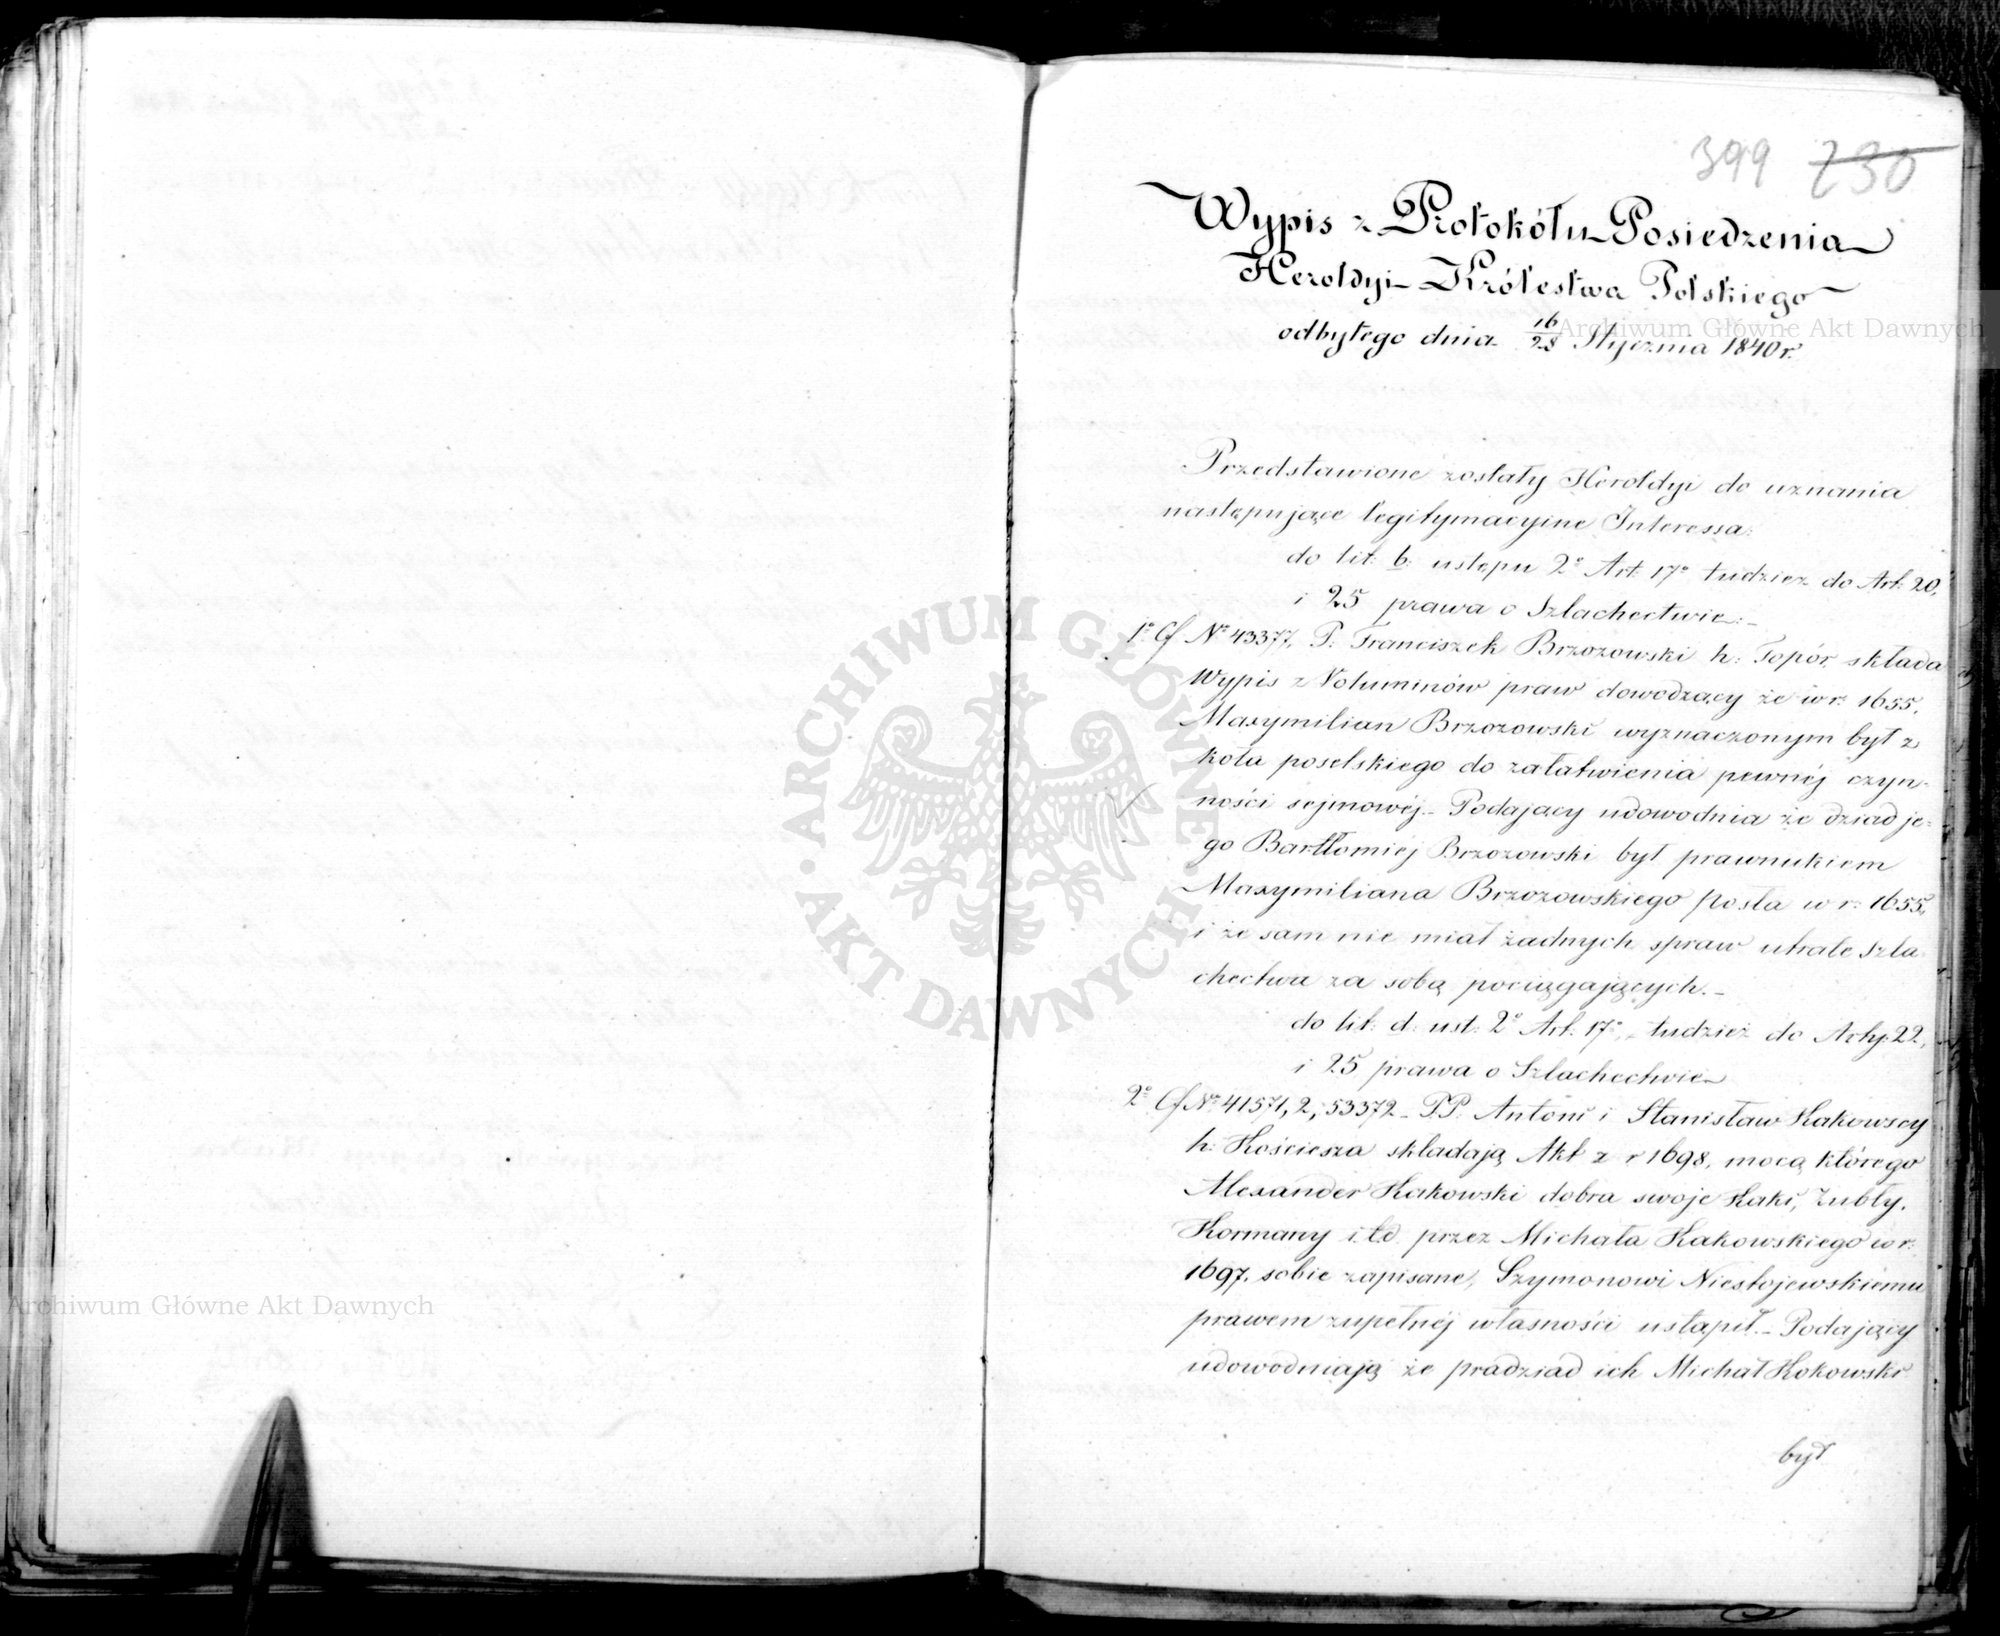 399 230
Wypis z Protokółu Posiedzenia
Heroldyi Królestwa Polskiego
odbytego dnia 16/28 Stycznia 1840 r.
Przedstawione zostały Heroldyi do uznania
następujące legitymacyine Interessa:
do lit: b: ustępu 2º Art: 17º tudzież do Art. 20,
i 25 prawa o Szlachectwie.-
1º Cf Nº 43377. P: Franciszek Brzozowski h: Topór, składa
Wypis z Voluminów praw dowodzący że w r: 1655.
Maxymilian Brzozowski wyznaczonym był z
koła poselskiego do załatwienia pewnéj czyn-
ności sejmowéj.- Podający udowodnia że dziad je-
go Bartłomiéj Brzozowski był prawnukiem
Maxymiliana Brzozowskiego posła w r: 1655,
i że sam nie miał żadnych spraw utratę szla-
chectwa za sobą pociągających.-
do lit: d: ust: 2º Art: 17º,- tudzież do Arty: 22,
i 25 prawa o Szlachectwie
2º Cf Nº 41571, 2, 53372 - P.P. Antoni i Stanisław Kakowscy
h: Kościesza składają Akt z r 1698, mocą którego
Alexander Kakowski dobra swoje Kaki, Zubły,
Kormany i.t.d. przez Michała Kakowskiego w r:
1697. sobie zapisane, Szymonowi Niestojewskiemu
prawem zupełnéj własności ustąpił.- Podający
udowodniają że pradziad ich Michał Kokowski
był
Archiwum Główne Akt Dawnych
Archiwum Główne Akt Dawnych
· ARCHIWUM GŁÓWNE · AKT DAWNYCH